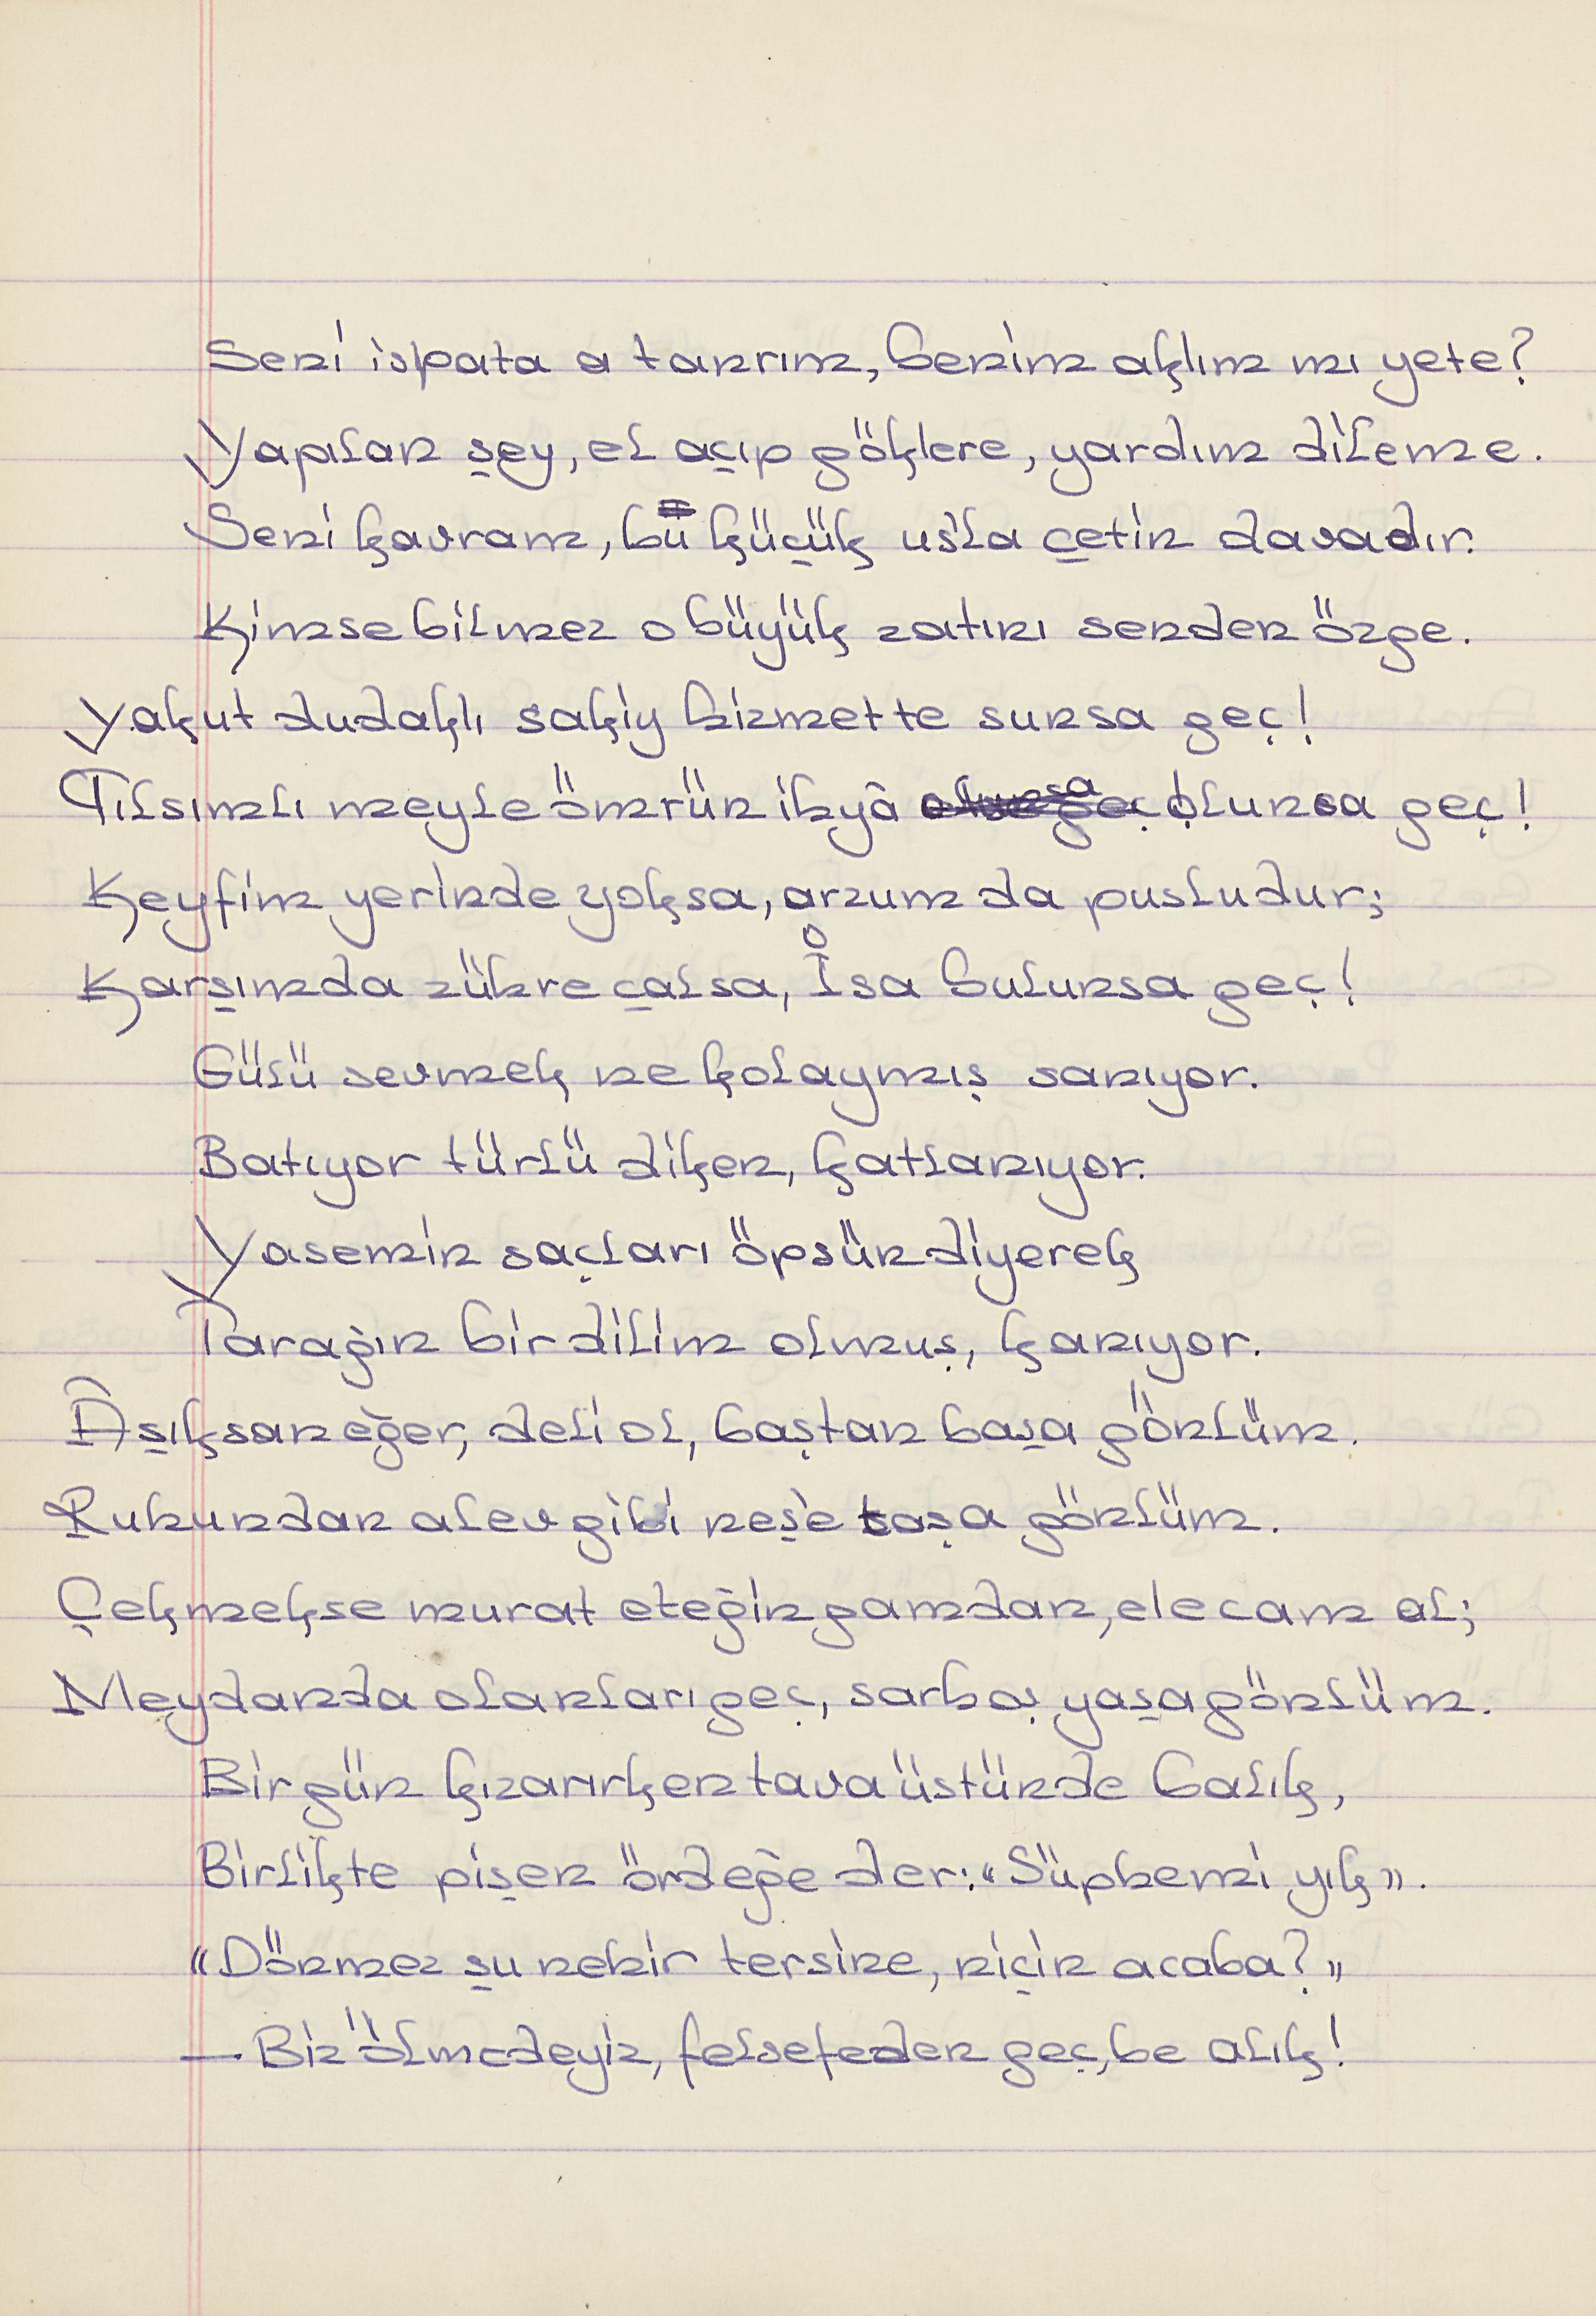 Seni ispata a tanrım, benim aklım mı yete?
Yapılan şey, el açıp göklere, yardım dileme.
Seni kavram, bu küçük us'la çetin davadır.
Kimse bilmez o büyük zatını senden özge.
Yakut dudaklı sakiy hizmette sunsa geç!
Tılsımlı meyle ömrün ihyâ olunsa geç!
Keyfim yerinde yoksa, arzum da pusludur;
Karşımda zühre çalsa, İsa bulunsa geç!
Gülü sevmek ne kolaymış sanıyor.
Batıyor türlü diken, katlanıyor.
Yasemin saçları öpsün diyerek
Tarağın bir dilim olmuş, kanıyor.
Âşıksan eğer, deli ol, baştan başa gönlüm.
Ruhundan alev gibi neş'e taşa gönlüm.
Çekmekse murat eteğin gamdan, ele cam al;
Meydanda olanları geç, sarhoş yaşa gönlüm.
Bir gün kızarırken tava üstünde balık,
Birlikte pişen ördeğe der: "Süphemi yık".
"Dönmez şu nehir tersine, niçin acaba?"
— Biz ölmedeyiz, felsefeden geç, be alık!